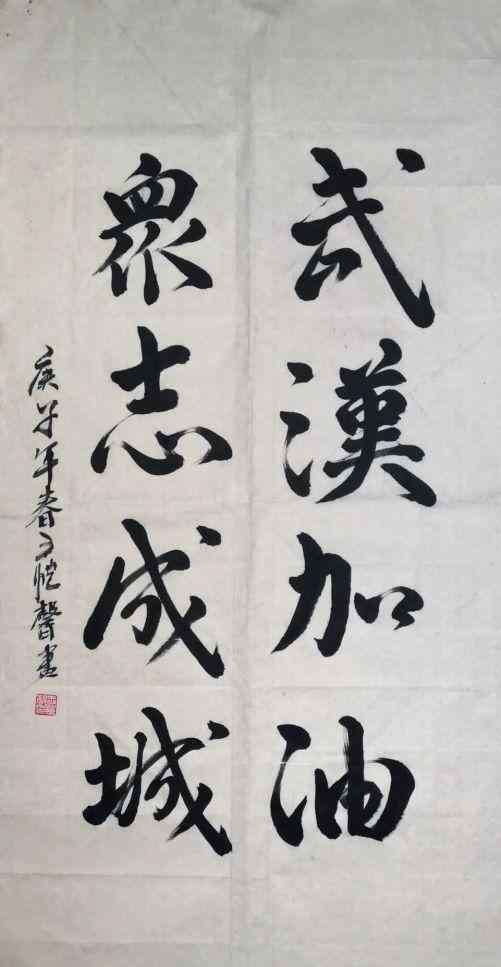 武漢加油
衆志成城
庚子年春月恺聲書